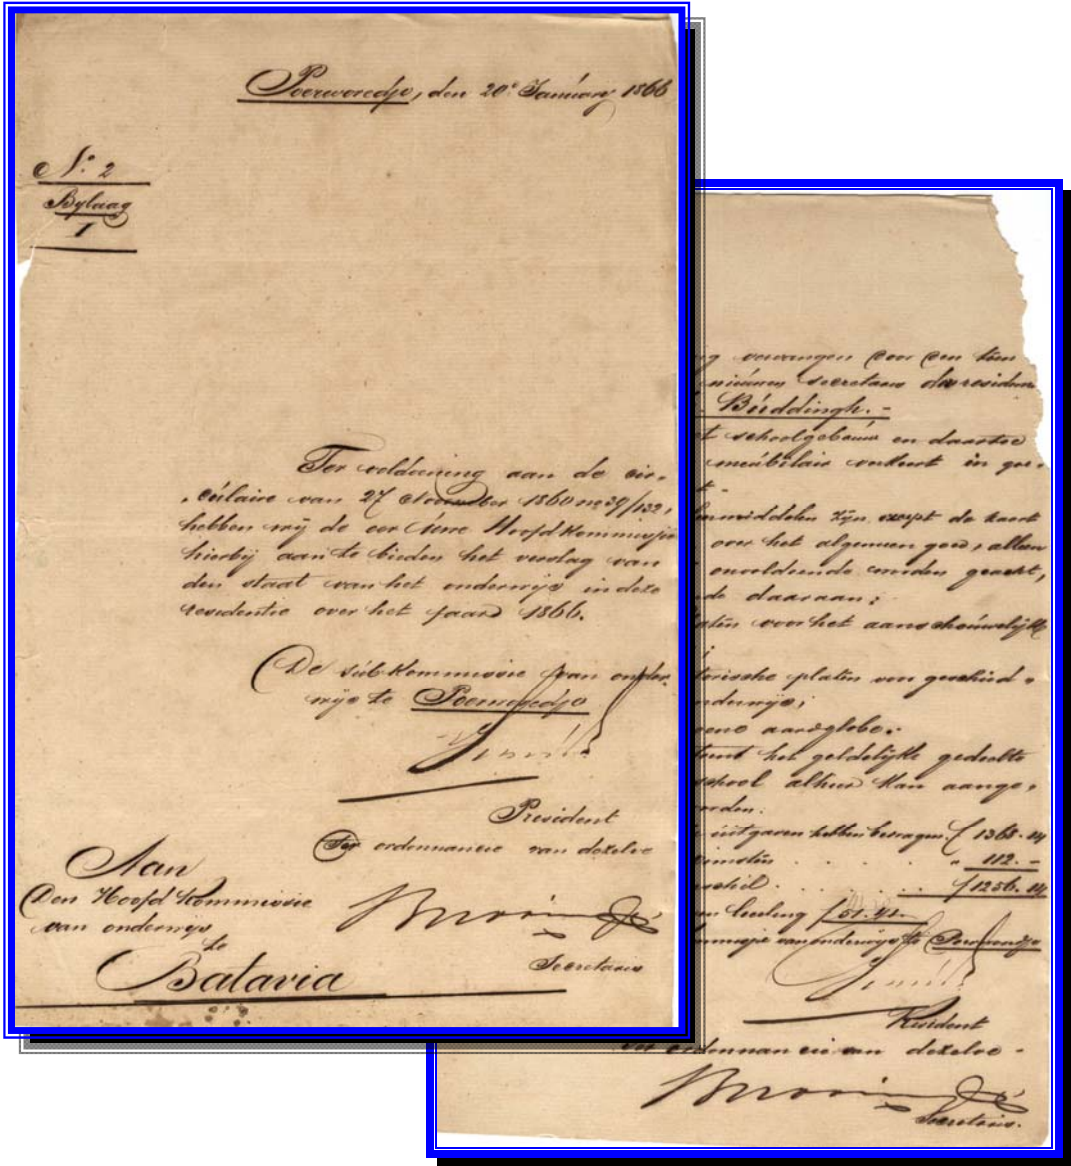 Poerworedjo, den 20e Januarij 1866
No. 2
Bylaag
1
Ter voldoening aan de cir-
culaire van 27 November 1860 no 29/132,
hebben wij de eer Uwe Hoofdkommissie
hierbij aan te bieden het verslag van
den staat van het onderwijs in deze
residentie over het jaar 1866.
De subkommissie van onder
wijs te Poerworedjo
President
Ter ordonnancie van dezelve
Aan
Den Hoofd Kommissie
van onderwijs
te
Batavia
Secretaris
vervangen door den
nieuwen secretaris der residen
Buddingh. -
schoolgebouw en daartoe
meubilair verkeert in goe-
middelen zijn except de kaart
over het algemeen goed, alleen
onvoldoende worden geacht,
daaraan:
platen voor het aanschouwelijke
;
historische platen van geschied -
onderwijs;
aardglobe.
het geldelijke gedeelte
school alhier kan aange,
worden.
uitgaven hebben bedragen f 1368.14
" 112. -
f 1256.14
leerling f 51.41.
van onderwijs te Poerworedjo
President
Ter ordonnancie van dezelve -
Secretaris.